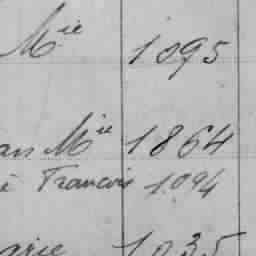 Mie 1095
an Mie 1864
è Francois 1094
arie 1035